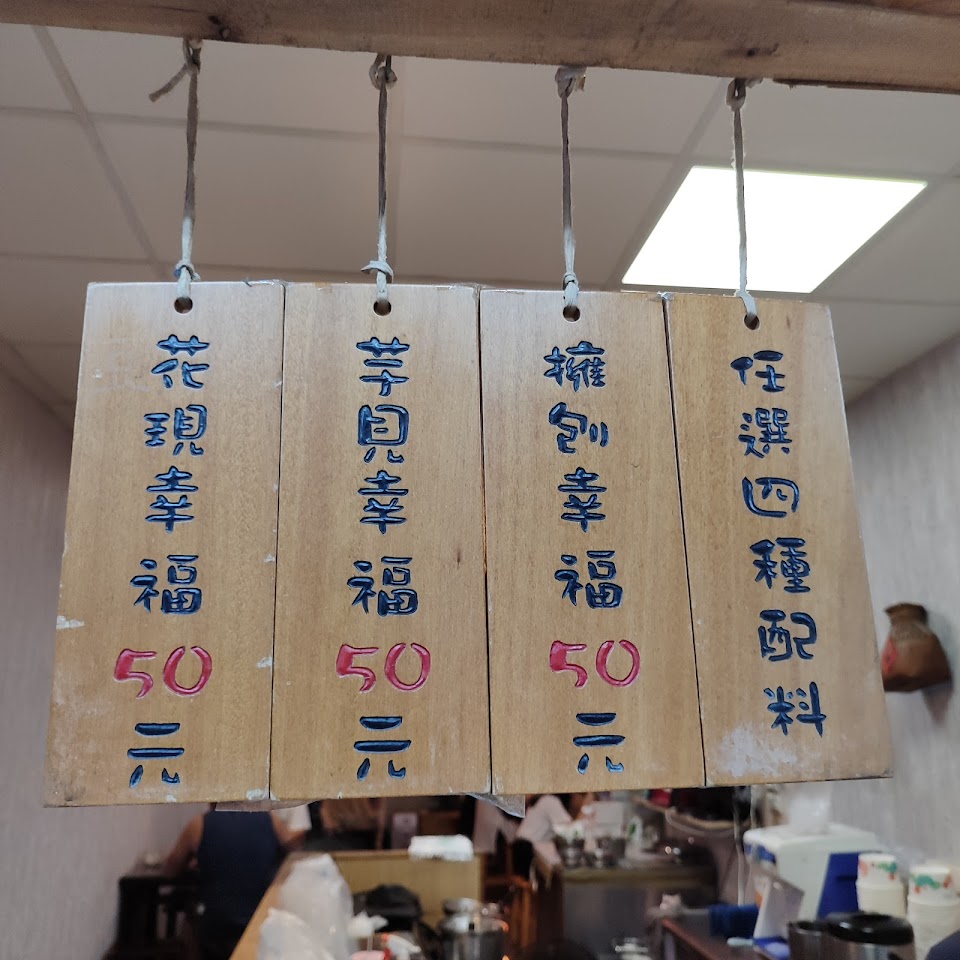 花現幸福50元
芋見幸福50元
擁刨幸福50元
任選四種配料